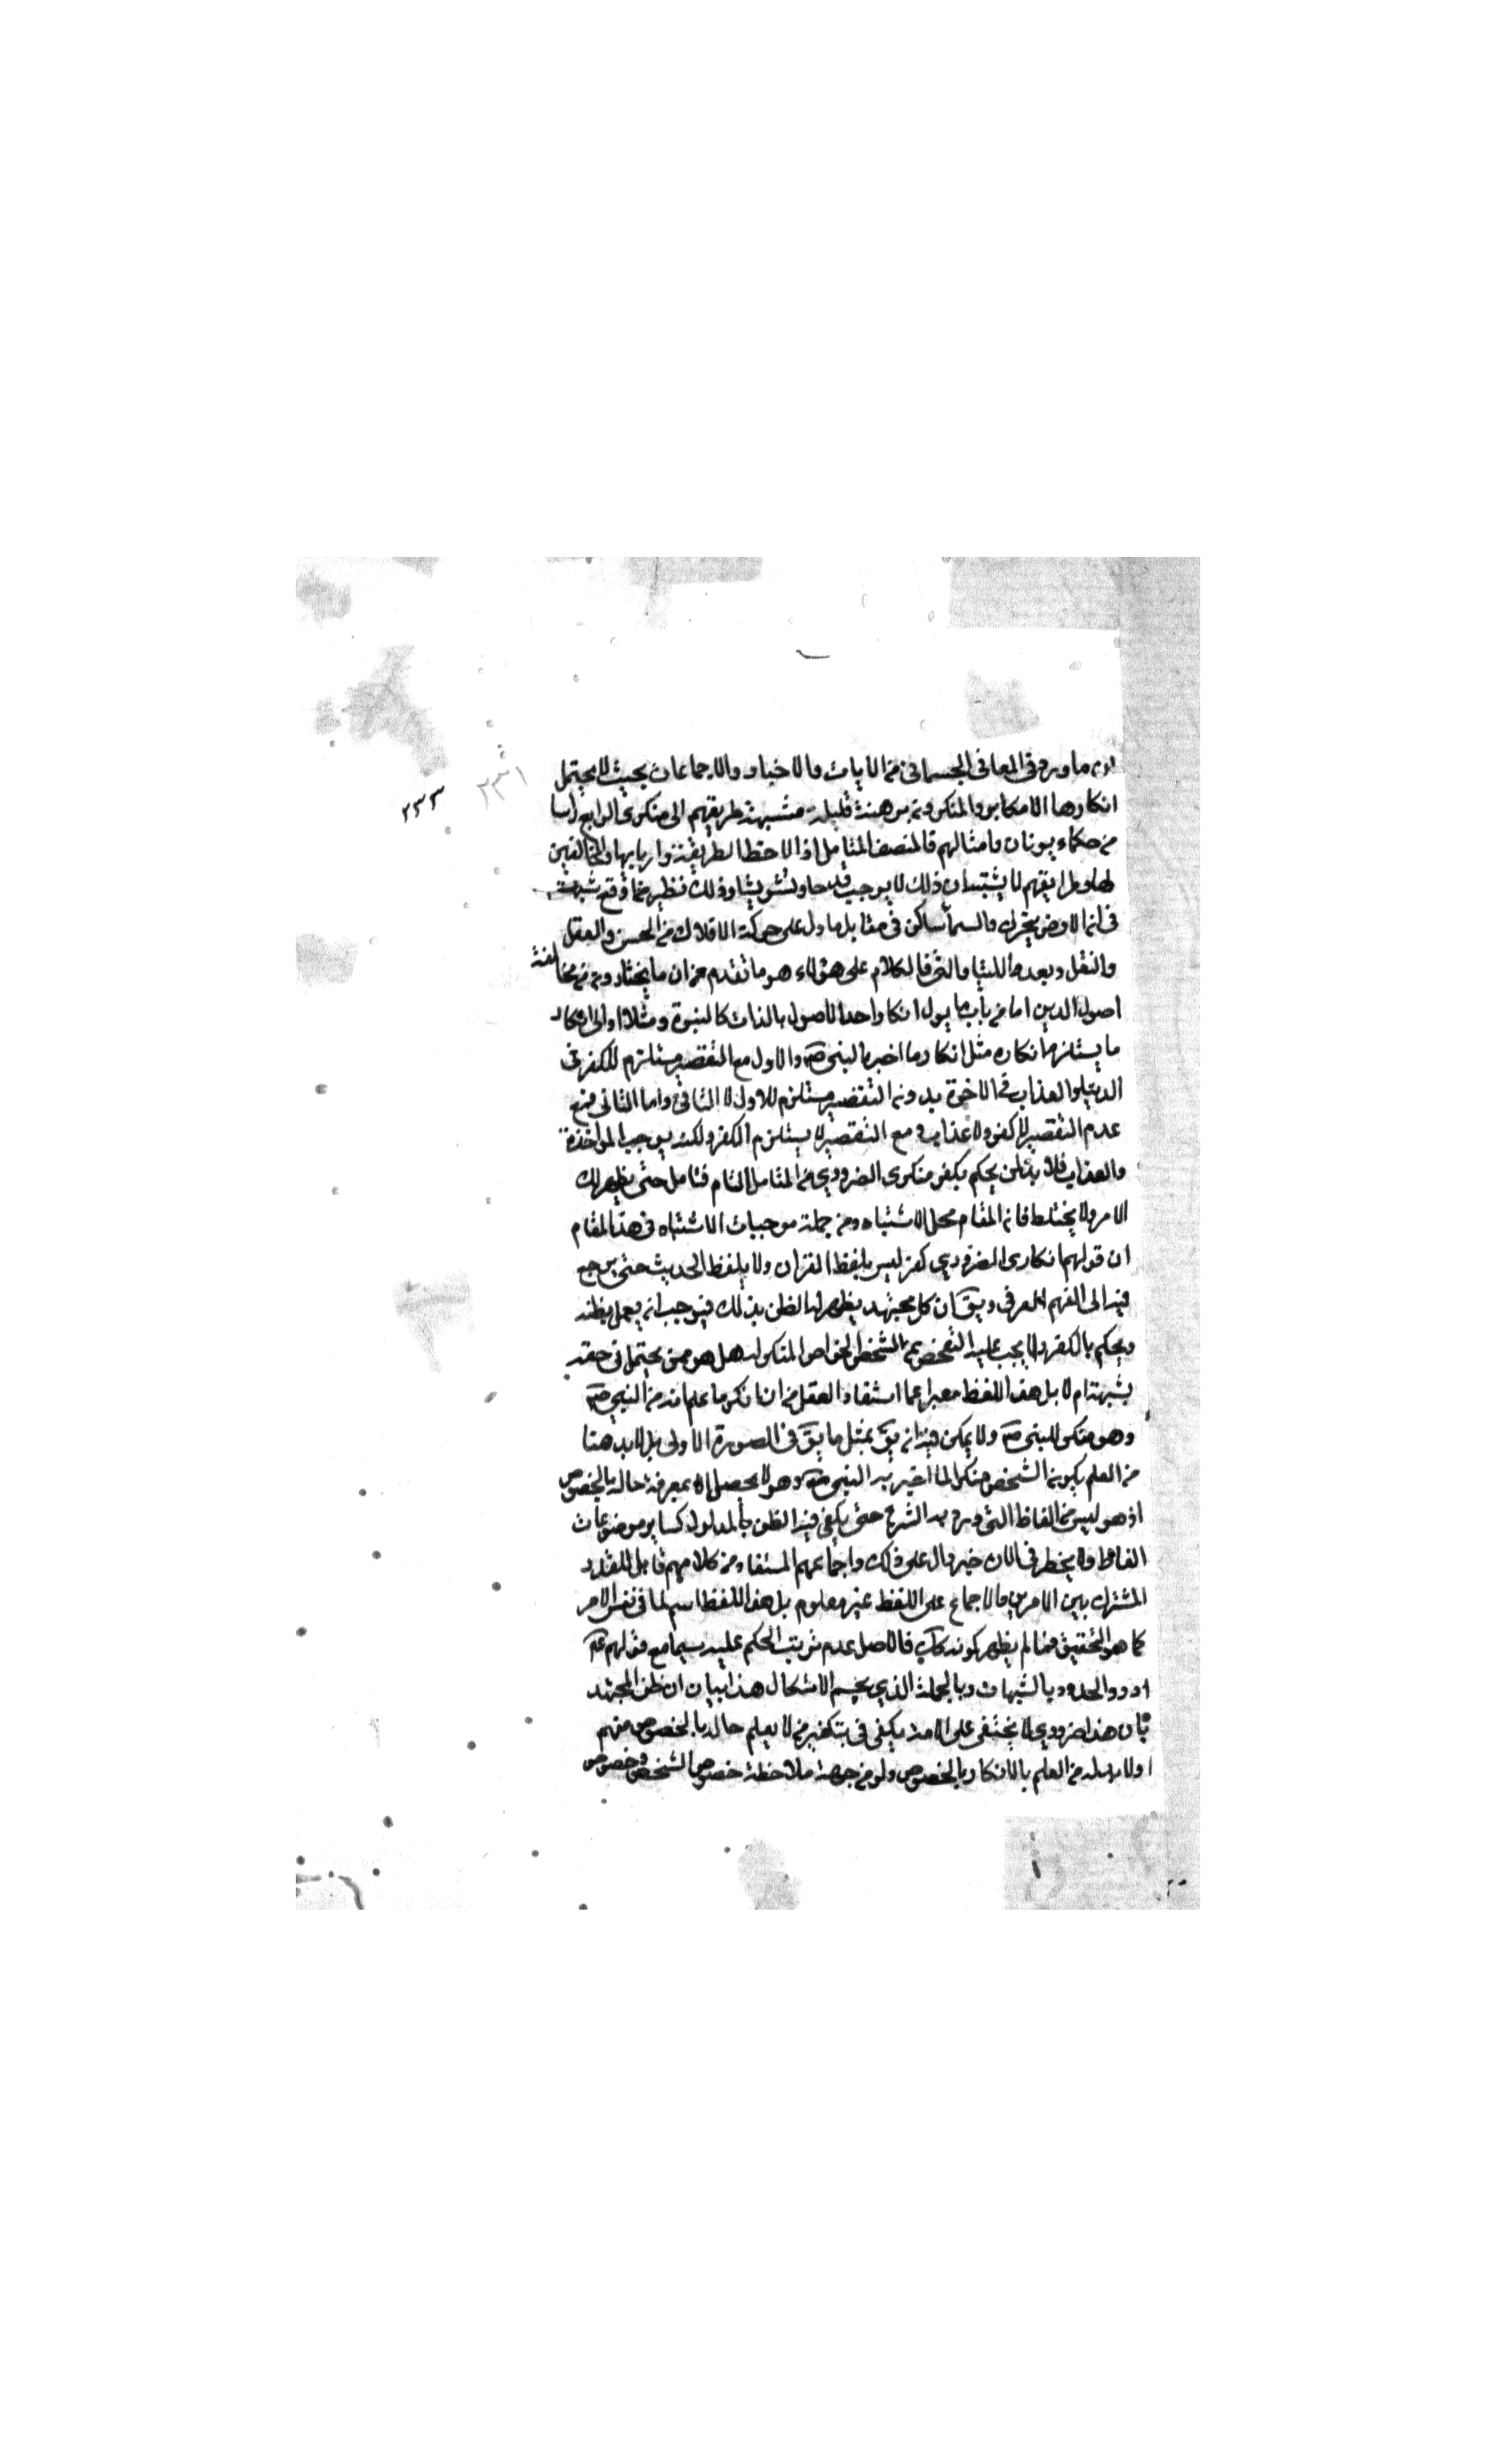 ان ما ورد فى المعاد الجسمانى من الايات والاخبار والاجماعات بحيث لا يحتمل
انكارها الا مكابر والمنكرون شرذمة قليلة مشبهة طريقهم الى منكرى الرابع راسا
من حكماء يونان وامثالهم فالمنصف المتامل اذا لاحظ الطريقة واربابها والمخالفين
لها وطرايقهم لا يشتبه ان ذلك لا يوجب قدحا وتشويشا وذلك نظير ما وقع شبهة
فى ان الارض يتحرك والسماء ساكن فى مقابل ما دل على حركة الافلاك من الحس والعقل
والنقل وبعد اللتيا والتى فالكلام على هؤلاء هو ما تقدم من ان ما يختارونه من مخالفة
اصول الدين اما من باب ما يول انكار احد الاصول بالذات كالنبوة ومثلا او الى انكار
ما يستلزم انكاره مثل انكار ما اخبر به النبى ص والاول مع التقصير مستلزم للكفر فى
الدنيا والعذاب فى الاخرة بدون التقصير مستلزم للاول لا الثانى واما الثانى فمع
عدم التقصير لا كفر ولا عذاب ومع التقصير لا يستلزم الكفر ولكنه يوجب المواخذة
والعذاب فلا بد لمن يحكم بكفر منكرى الضرورى من التامل التام فتامل حتى يظهر لك
الامر ولا يختلط فان المقام محل الاشتباه ومن جملة موجبات الاشتباه فى هذا المقام
ان قولهم انكار الضرورى كفر ليس بلفظ القران ولا بلفظ الحديث حتى يرجع
فيه الى الفهم العرفى ويق ان كل مجتهد يظهر له الظن بذلك فيوجب ان يعمل بظنه
ويحكم بالكفر ولا يجب عليه التفحص عن الشخص الخاص المنكر له هل هو ممن يحتمل فى حقه
شبهة ام لا بل هذا اللفظ معبرا عما استفاد العقل من ان انكر ما علم انه من النبى ص
وهو منكر للنبى ص ولا يمكن فيه ان يق بمثل ما يق فى الصورة الاولى بل لا بد هنا
من العلم بكون الشخص منكرا لما اخبر به النبى ص وهو لا يحصل الا بمعرفة حاله بالخصوص
اذ هو ليس من الفاظ التى ورد به الشرع حتى يكفى فيه الظن بالمدلول كساير موضوعات
الفاظ ولا يخطر فى الان خبر دال على ذلك واجماعهم المستفاد من كلامهم قابل للقدر
المشترك بين الامرين والاجماع على اللفظ غير معلوم بل هذا اللفظ اسم لما فى نفس الامر
كما هو التحقيق فما لم يظهر كونه كك فالاصل عدم ترتب الحكم عليه سيما مع قولهم ع
ادرؤا الحدود بالشبهات وبالجملة الذى يحسم الاشكال هذا بيان ان ظن المجتهد
بان هذا ضرورى لا يختفى على الامة يكفى فى تكفير من لا يعلم حاله بالخصوص منهم
او لا بد له من العلم بالانكار بالخصوص ولو من جهة ملاحظة خصوص الشخص وخصوص
٢٣٣
٢٣١